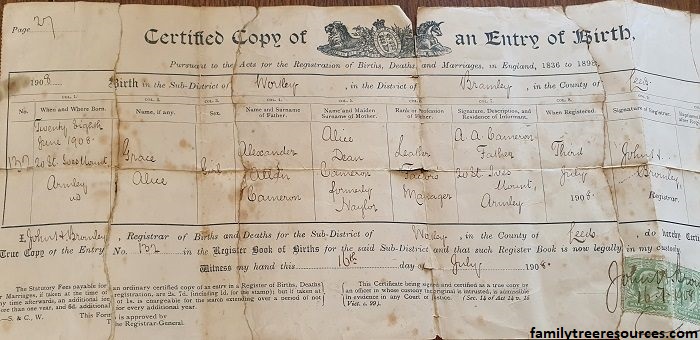 Page 27
Certified Copy of an Entry of Birth.
Pursuant to the Acts for the Registration of Births, Deaths, and Marriages, in England, 1836 to 1898.
1908 Birth in the Sub-District of Wortley, in the District of Bramley, in the County of Leeds
COL. 1. COL. 2. COL. 3. COL. 4. COL. 5. COL. 6. COL. 7. COL. 8.
No. When and Where Born. Name, if any. Sex. Name and Surname of Father. Name and Maiden Surname of Mother. Rank or Profession of Father. Signature, Description, and Residence of Informant. When Registered. Signature of Registrar.
132 Twenty Eighth June 1908. 20 St. Ives Mount, Armley Grace Alice Girl Alexander Allan Cameron Alice Jean Cameron formerly Naylor Leather Manager A. A. Cameron Father 20 St. Ives Mount, Armley Third July 1908. John H. Bromley Registrar.
I John H Bromley, Registrar of Births and Deaths for the Sub-District of Wortley, in the County of Leeds, do hereby Certi
True Copy of the Entry No. 132 in the Register Book of Births for the said Sub-District and that such Register Book is now legally in my custody
Witness my hand this 16th day of July 1908.
The Statutory Fees payable for an ordinary certified copy of an entry in a Register of Births, Deaths
or Marriages, if taken at the time of registration, are 2s. 7d. (including 1d. for the stamp); but if taken at
any time afterwards, an additional fee of 1s. is chargeable for search extending over a period of not
more than one year, and 6d. additional for every additional year.
—S. & C. W. This Form is approved by
The Registrar-General.
This Certificate being signed and certified as a true copy by
an officer in whose custody the original is intrusted, is admissible
in evidence in any Court of Justice. (Sec. 14 of Act 14 & 15
Vict. c. 99).
familytreeresources.com